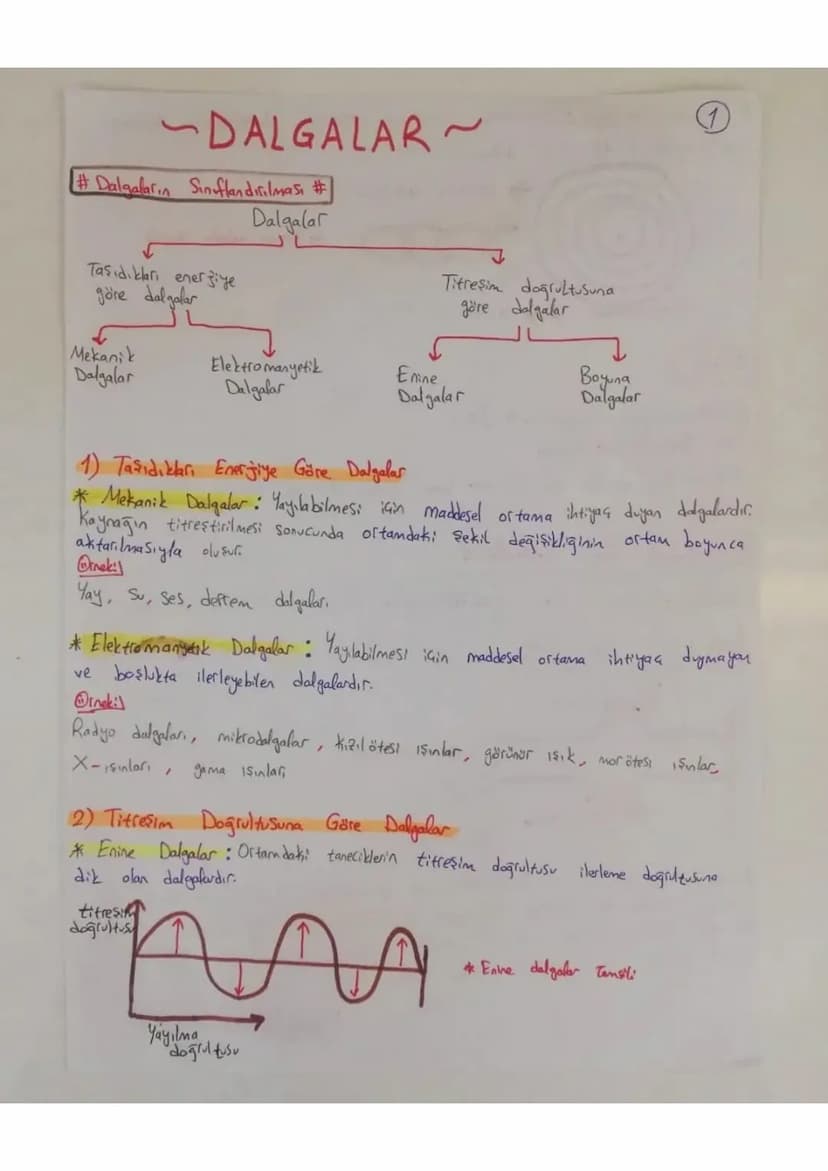 ~DALGALAR~
1
# Dalgaların Sınıflandırılması #
Dalgalar
Taşıdıkları enerjiye
göre dalgalar
Titreşim doğrultusuna
göre dalgalar
Mekanik
Dalgalar
Elektromanyetik
Dalgalar
Enine
Dalgalar
Boyuna
Dalgalar
1) Taşıdıkları Enerjiye Göre Dalgalar
* Mekanik Dalgalar : Yayılabilmesi için maddesel ortama ihtiyaç duyan dalgalardır.
Kaynağın titreştirilmesi sonucunda ortamdaki şekil değişikliğinin ortam boyunca
aktarılmasıyla oluşur.
Örnek;
Yay, Su, Ses, deprem dalgaları
* Elektromanyetik Dalgalar : Yayılabilmesi için maddesel ortama ihtiyaç duymayan
ve boşlukta ilerleyebilen dalgalardır.
Örnek;
Radyo dalgaları, mikrodalgalar, kızıl ötesi ışınlar, görünür ışık, mor ötesi ışınlar,
X-ışınları, gama ışınları
2) Titreşim Doğrultusuna Göre Dalgalar
* Enine Dalgalar : Ortamdaki taneciklerin titreşim doğrultusu ilerleme doğrultusuna
dik olan dalgalardır.
titreşim
doğrultusu
* Enine dalgalar temsili
Yayılma
doğrultusu